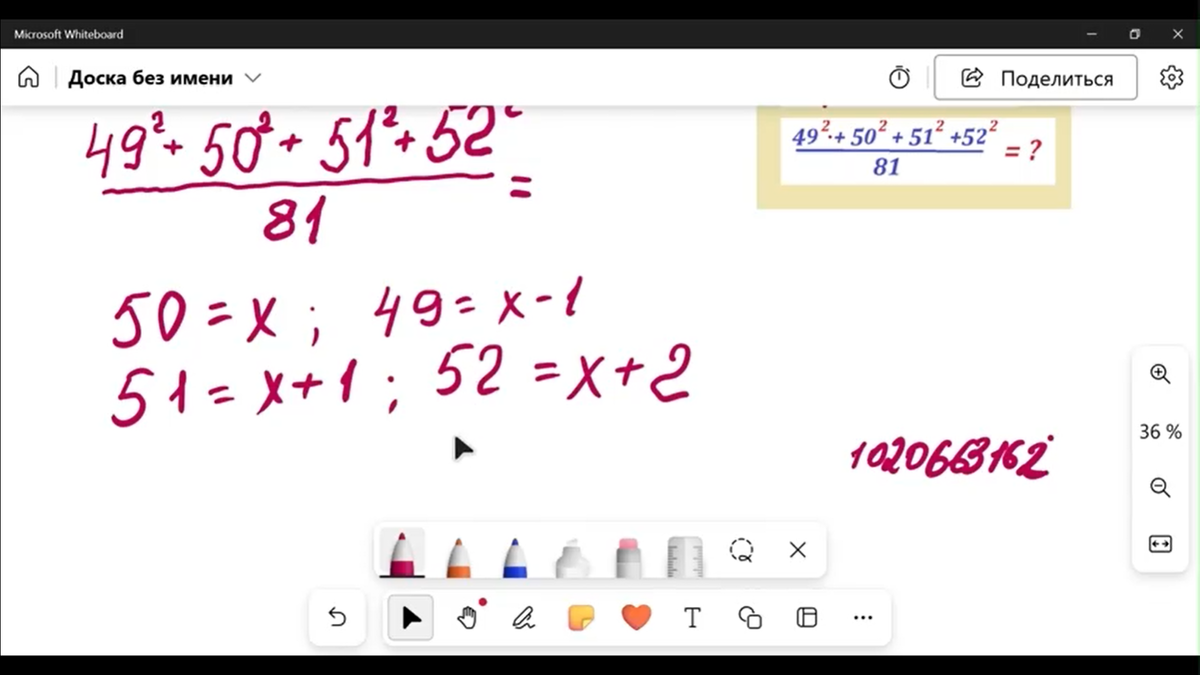 Microsoft Whiteboard
Доска без имени
Поделиться
49² + 50² + 51² + 52²
81
=
49² + 50² + 51² + 52²
81
= ?
50 = x ; 49 = x - 1
51 = x + 1 ; 52 = x + 2
1020663162
36 %